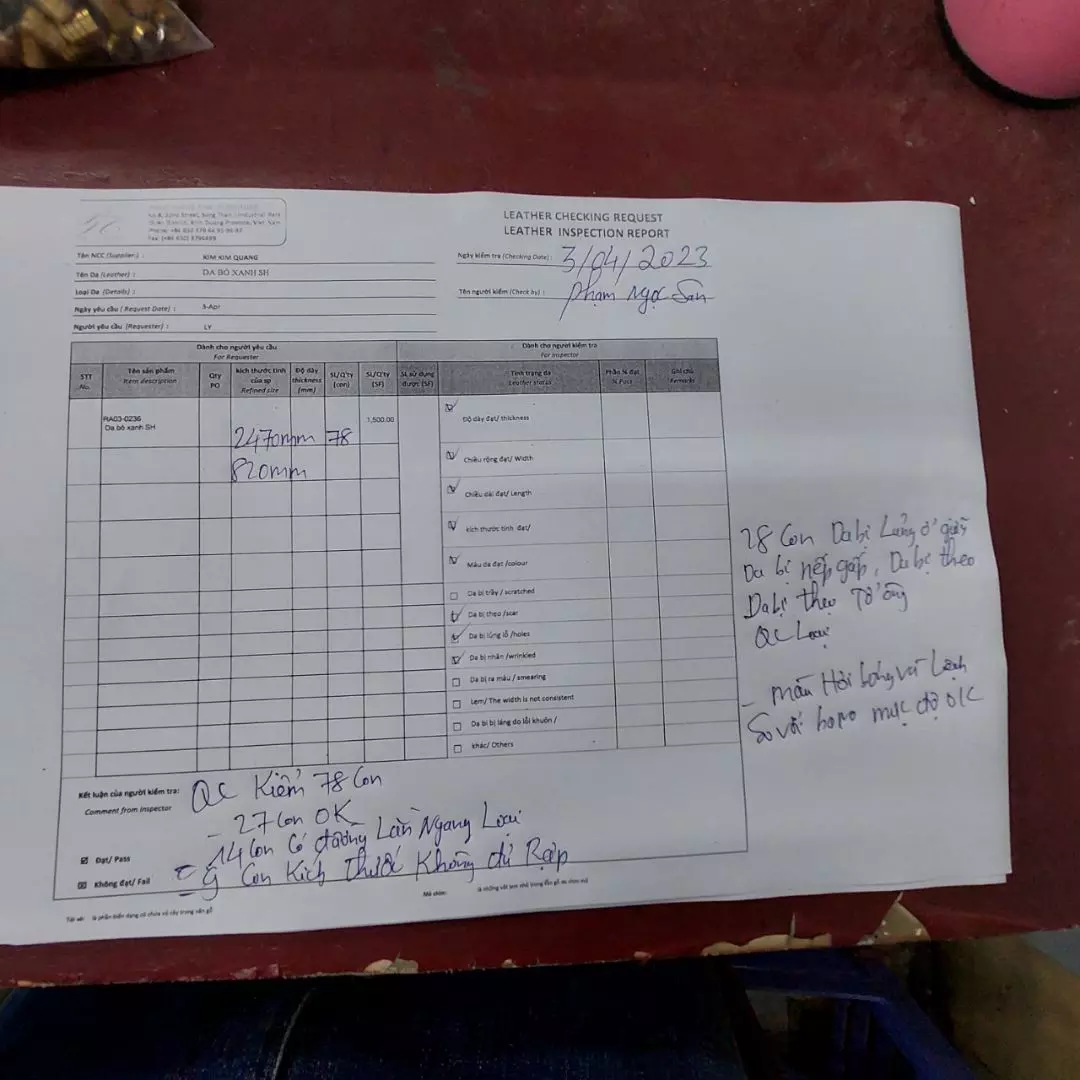 No.8, 32nd Street, Song Than I Industrial Park
LEATHER CHECKING REQUEST
LEATHER INSPECTION REPORT
Tên NCC (Supplier) : KIM KIM QUANG
Ngày kiểm tra (Checking Date) : 3/04/2023
Tên Da (Leather) : DA BÒ XANH SH
Loại Da (Details) :
Tên người kiểm (Check by) : Phạm Ngọc
Ngày yêu cầu ( Request Date) : 3-Apr
Người yêu cầu (Requester) : LY
Dành cho người yêu cầu
For Requester
Dành cho người kiểm tra
For Inspector
STT No.
Tên sản phẩm Item description
Qty PO
kích thước tinh của sp Refined size
Độ dày thickness (mm)
SL/Q'ty (con)
SL/Q'ty (SF)
SL sử dụng được (SF)
Tình trạng da Leather status
Phần % đạt % Pass
Ghi chú Remarks
RA03-0236
Da bò xanh SH
2470mm 78
1,500.00
820mm
Độ dày đạt/ thickness
Chiều rộng đạt/ Width
Chiều dài đạt/ Length
kích thước tinh đạt/
Màu da đạt /colour
Da bị trầy / scratched
Da bị thẹo /scar
Da bị lủng lỗ /holes
Da bị nhăn /wrinkled
Da bị ra màu / smearing
Lem/ The width is not consistent
Da bị bị láng do lỗi khuôn /
khác/ Others
28 con Da bị Lủng ở giữa
Da bị nếp gấp, Da bị thẹo
Da bị thẹo Tổ ong
QC Loại
- màu Hơi bóng và Lệch
So với mức độ OK
Kết luận của người kiểm tra:
Comment from Inspector
QC Kiểm 78 Con
- 27 con OK
- 14 con Có đường Lằn Ngang Loại
- 9 Con Kích Thước Không đủ Rập
Đạt/ Pass
Không đạt/ Fail